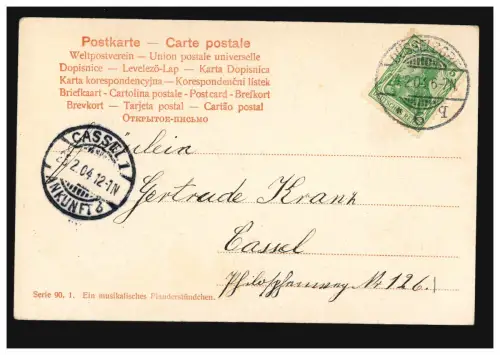 Postkarte — Carte postale
Weltpostverein — Union postale universelle
Dopisnice — Levelező-Lap — Karta Dopisnica
Karta korespondencyjna — Korespondenční lístek
Briefkaart - Cartolina postale - Postcard - Brefkort
Brevkort — Tarjeta postal — Cartão postal
Открытое-письмо
CASSEL 1
2.04.12-1N
ANKUNFT
Fräulein
Gertrude Krank
Cassel
Philosophenweg Nr 126.
Serie 90. 1. Ein musikalisches Plauderstündchen.